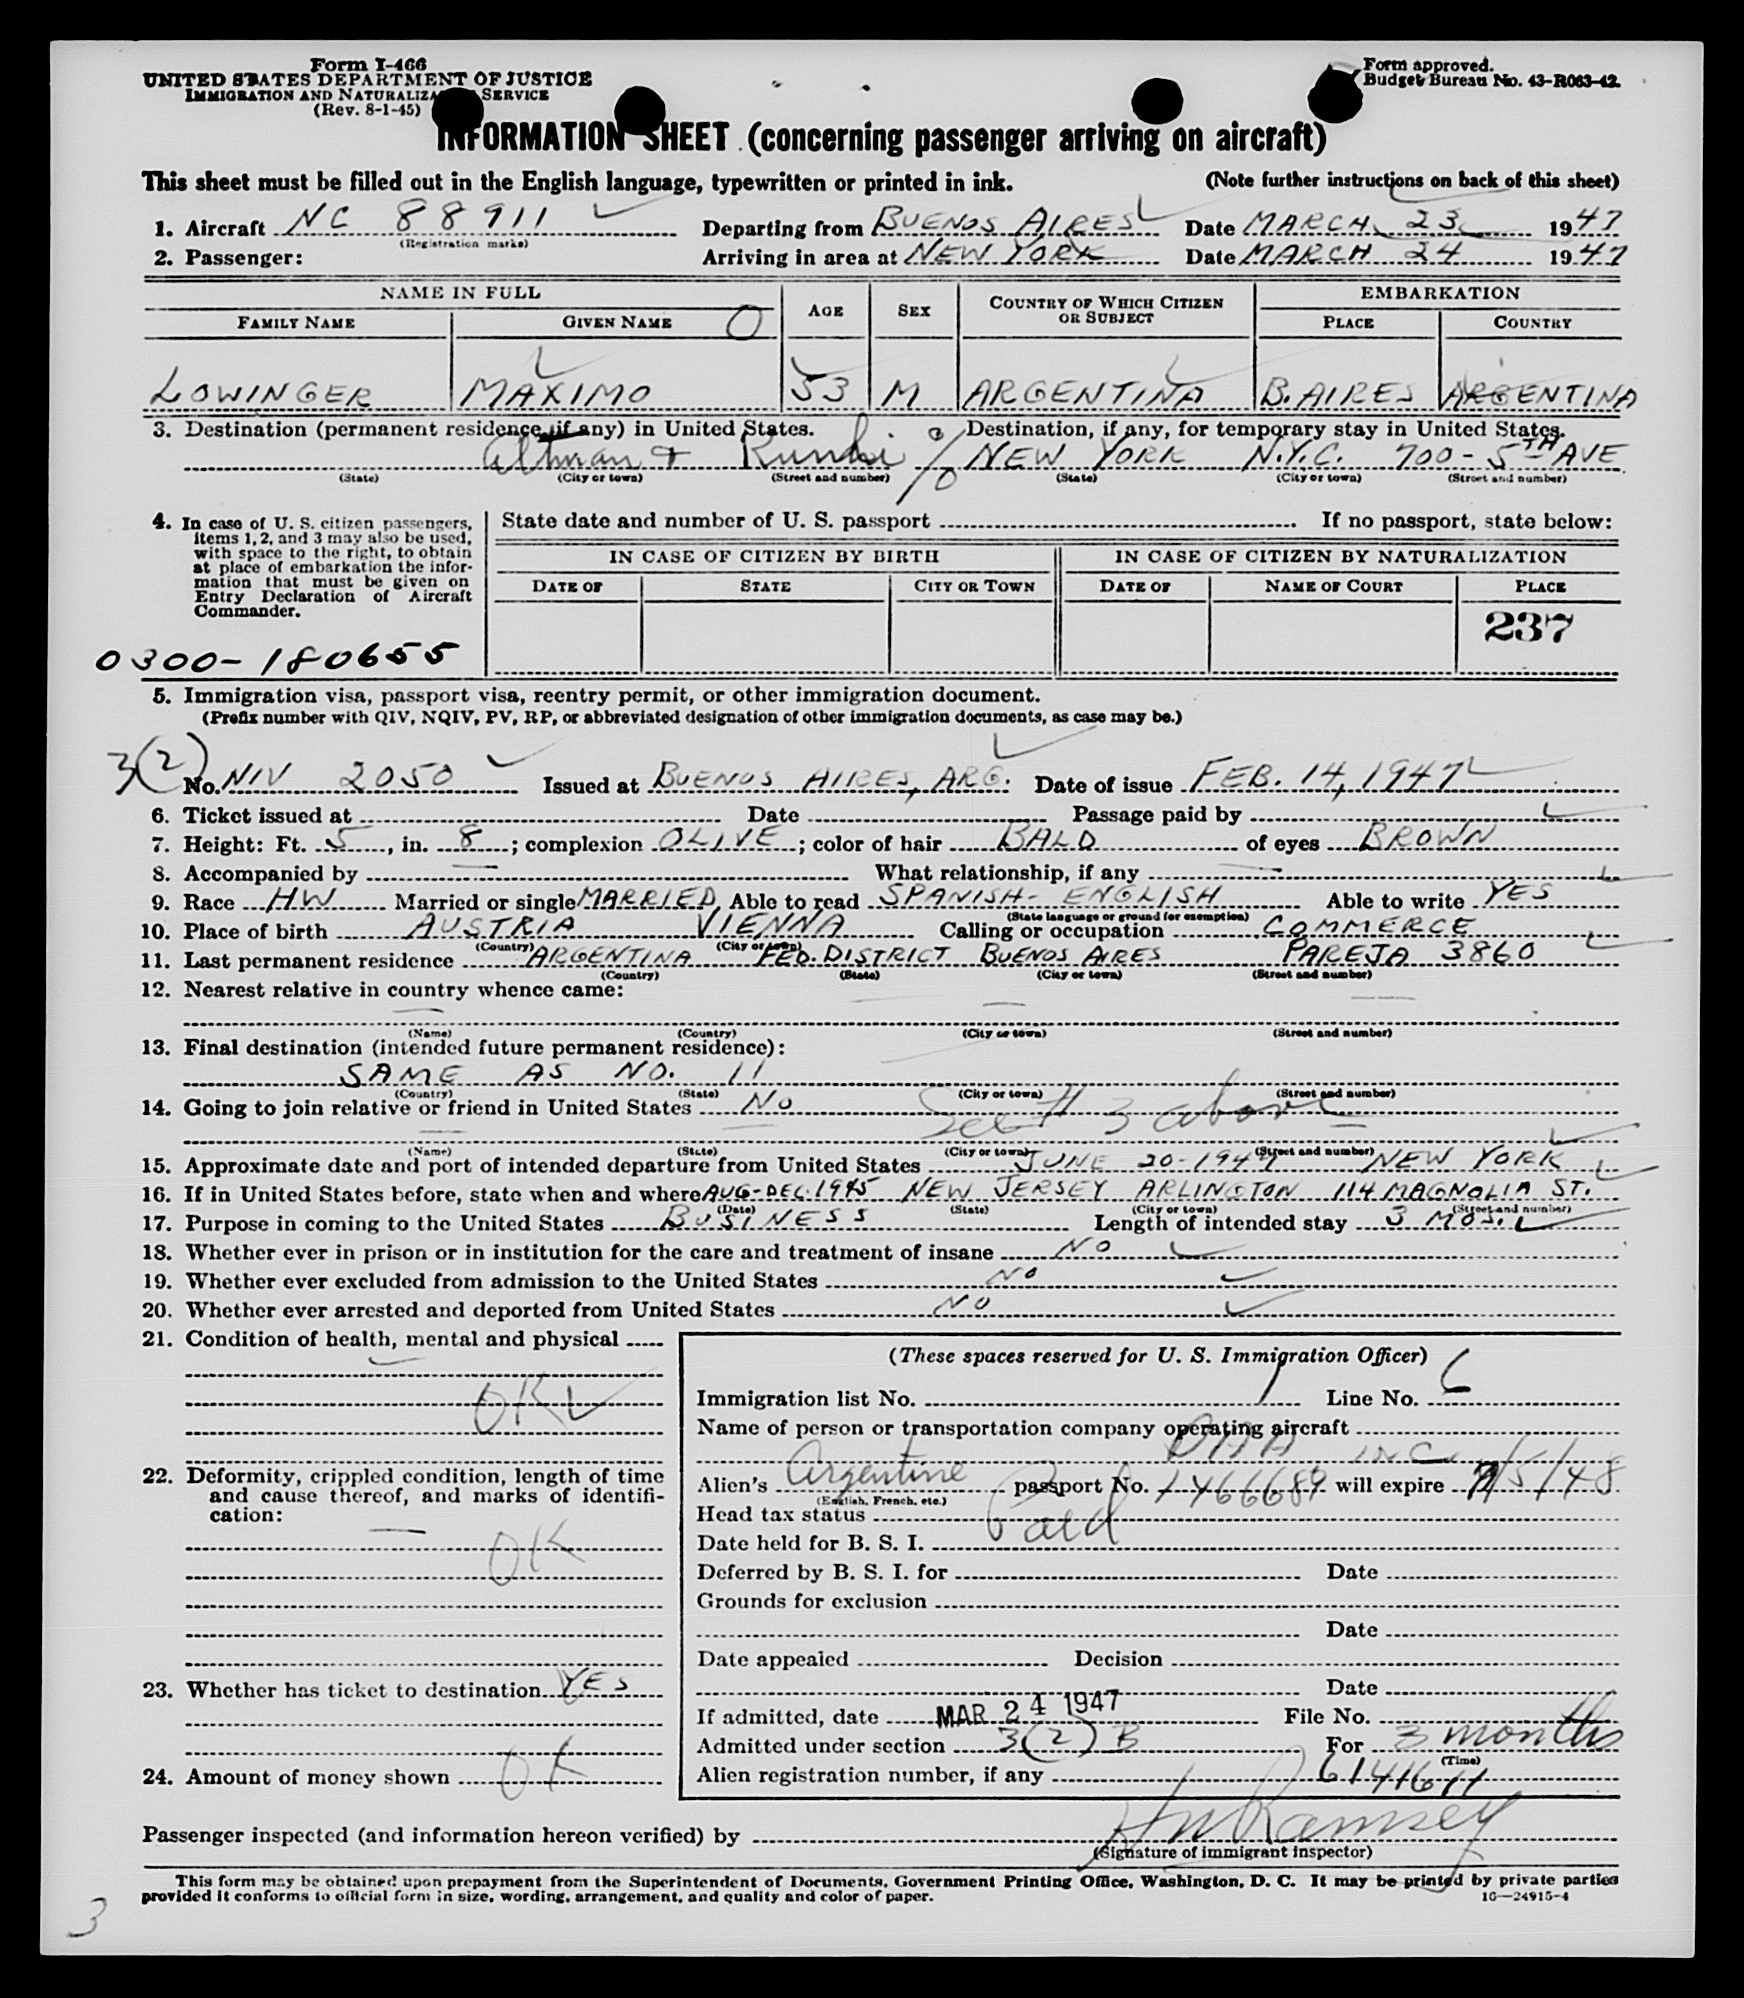 Form I-466
UNITED STATES DEPARTMENT OF JUSTICE
IMMIGRATION AND NATURALIZATION SERVICE
(Rev. 8-1-45)
Form approved.
Budget Bureau No. 43-R063-42.
INFORMATION SHEET (concerning passenger arriving on aircraft)
This sheet must be filled out in the English language, typewritten or printed in ink. (Note further instructions on back of this sheet)
1. Aircraft NC 88911 Departing from BUENOS AIRES Date MARCH 23 1947
(Registration marks)
2. Passenger: Arriving in area at NEW YORK Date MARCH 24 1947
NAME IN FULL AGE SEX COUNTRY OF WHICH CITIZEN OR SUBJECT EMBARKATION
FAMILY NAME GIVEN NAME O PLACE COUNTRY
LOWINGER MAXIMO 53 M ARGENTINA B.AIRES ARGENTINA
3. Destination (permanent residence, if any) in United States. Destination, if any, for temporary stay in United States.
Altman + % NEW YORK N.Y.C. 700-5TH AVE
(State) (City or town) (Street and number) (State) (City or town) (Street and number)
4. In case of U. S. citizen passengers, items 1, 2, and 3 may also be used, with space to the right, to obtain at place of embarkation the information that must be given on Entry Declaration of Aircraft Commander.
State date and number of U. S. passport If no passport, state below:
IN CASE OF CITIZEN BY BIRTH IN CASE OF CITIZEN BY NATURALIZATION
DATE OF STATE CITY OR TOWN DATE OF NAME OF COURT PLACE
237
0300-180655
5. Immigration visa, passport visa, reentry permit, or other immigration document.
(Prefix number with QIV, NQIV, PV, RP, or abbreviated designation of other immigration documents, as case may be.)
3(2)
No. NIV 2050 Issued at BUENOS AIRES, ARG. Date of issue FEB. 14, 1947
6. Ticket issued at Date Passage paid by
7. Height: Ft. 5, in. 8; complexion OLIVE; color of hair BALD of eyes BROWN
8. Accompanied by — What relationship, if any —
9. Race HW Married or single MARRIED Able to read SPANISH-ENGLISH Able to write YES
(State language or ground for exemption)
10. Place of birth AUSTRIA VIENNA Calling or occupation COMMERCE
(Country) (City or town)
11. Last permanent residence ARGENTINA FED. DISTRICT BUENOS AIRES PAREJA 3860
(Country) (State) (City or town) (Street and number)
12. Nearest relative in country whence came:
— — —
(Name) (Country) (City or town) (Street and number)
13. Final destination (intended future permanent residence):
SAME AS NO. 11
(Country) (State) (City or town) (Street and number)
14. Going to join relative or friend in United States NO See # 3 above
(Name) (State) (City or town) (Street and number)
15. Approximate date and port of intended departure from United States JUNE 20-1947 NEW YORK
16. If in United States before, state when and where AUG-DEC. 1945 NEW JERSEY ARLINGTON 114 MAGNOLIA ST.
(Date) (State) (City or town) (Street and number)
17. Purpose in coming to the United States BUSINESS Length of intended stay 3 MOS.
18. Whether ever in prison or in institution for the care and treatment of insane NO
19. Whether ever excluded from admission to the United States NO
20. Whether ever arrested and deported from United States NO
21. Condition of health, mental and physical
OK
22. Deformity, crippled condition, length of time and cause thereof, and marks of identification:
—
OK
23. Whether has ticket to destination YES
24. Amount of money shown OK
(These spaces reserved for U. S. Immigration Officer)
Immigration list No. 1 Line No. 6
Name of person or transportation company operating aircraft
PAA INC
Alien's Argentine passport No. 1466689 will expire 9/5/48
(English, French, etc.)
Head tax status Paid
Date held for B. S. I.
Deferred by B. S. I. for Date
Grounds for exclusion
Date
Date appealed Decision
Date
If admitted, date MAR 24 1947 File No.
Admitted under section 3(2) B For 3 months
(Time)
Alien registration number, if any 6141611
Passenger inspected (and information hereon verified) by HW Ramsey
(Signature of immigrant inspector)
This form may be obtained upon prepayment from the Superintendent of Documents, Government Printing Office, Washington, D. C. It may be printed by private parties
provided it conforms to official form in size, wording, arrangement, and quality and color of paper. 16—24915-4
3